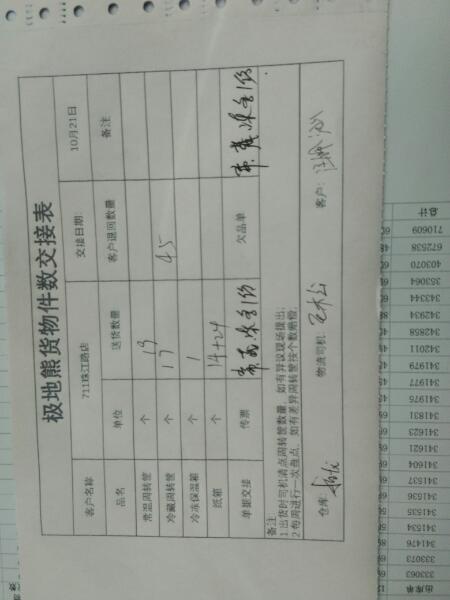 极地熊货物件数交接表
客户名称 711珠江路店 交接日期: 10月21日
品名 单位 送货数量 客户退回数量 备注
常温周转筐 个 19
冷藏周转筐 个 17 45
冷冻保温箱 个 1
纸箱 个 14+24
单据交接 传票 欠品单
备注
1.出货时司机清点周转筐数量，如有异议现场提出；
2.每周进行一次盘点，如有差异周转筐按个数赔偿。
仓库: 物流司机: 客户:
出库单
333063
333073
341476
341534
341535
341536
341537
341604
341621
341623
341831
341976
341977
341979
342011
342858
342934
343344
353064
403070
672538
710609
总计